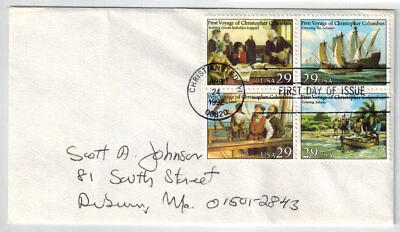 First Voyage of Christopher Columbus
Seeking Queen Isabella's Support
USA 29
First Voyage of Christopher Columbus
Crossing The Atlantic
29 USA
CHRISTIANSTED, VI
APR
24
1992
00820
FIRST DAY OF ISSUE
of Christopher Columbus
USA 29
First Voyage of Christopher Columbus
Coming Ashore
29 USA
Scott A. Johnson
81 South Street
Ma. 01501-2843